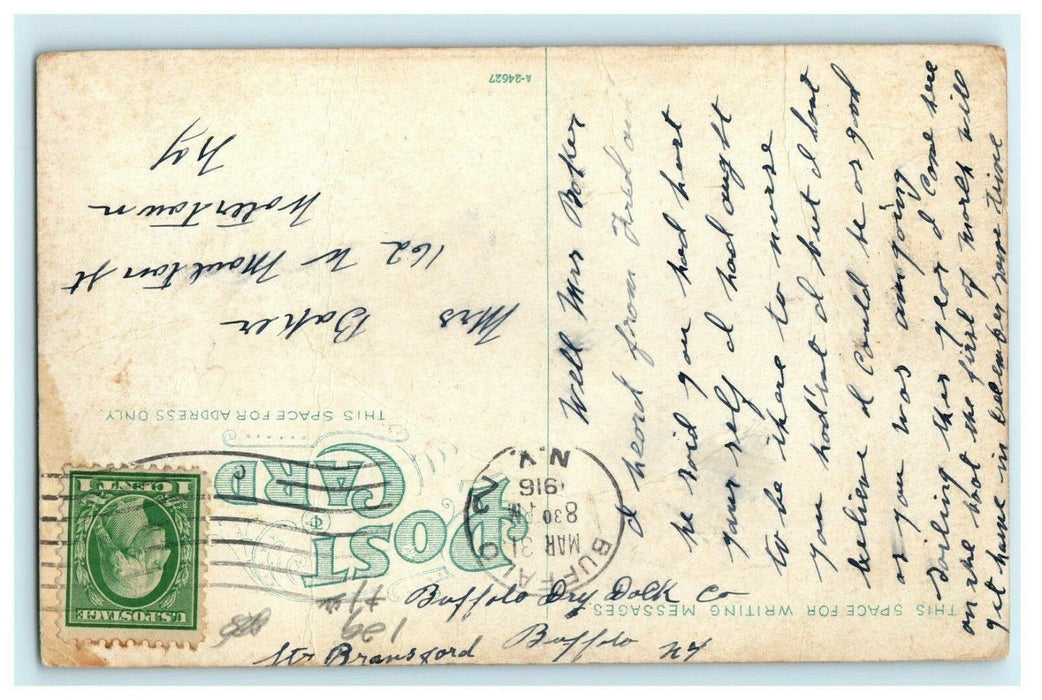 A-24627
POST CARD
THIS SPACE FOR ADDRESS ONLY.
THIS SPACE FOR WRITING MESSAGES
BUFFALO
MAR 31
830 PM
1916
N.Y.
2
1 CENT 1
U.S. POSTAGE
Mrs Baker
162 W Moulton St
Watertown
Ny
Well Mrs Baker
I heard from Fred and
he said you had hurt
your self I had aught
to be there to nurse
you hadnt I but I dont
believe I could be as good
as you was am going
sailing this year I Come see
on the boat the first of march will
get home in december some time
Buffalo Dry Dock Co
Buffalo NY
Str Bransford
129